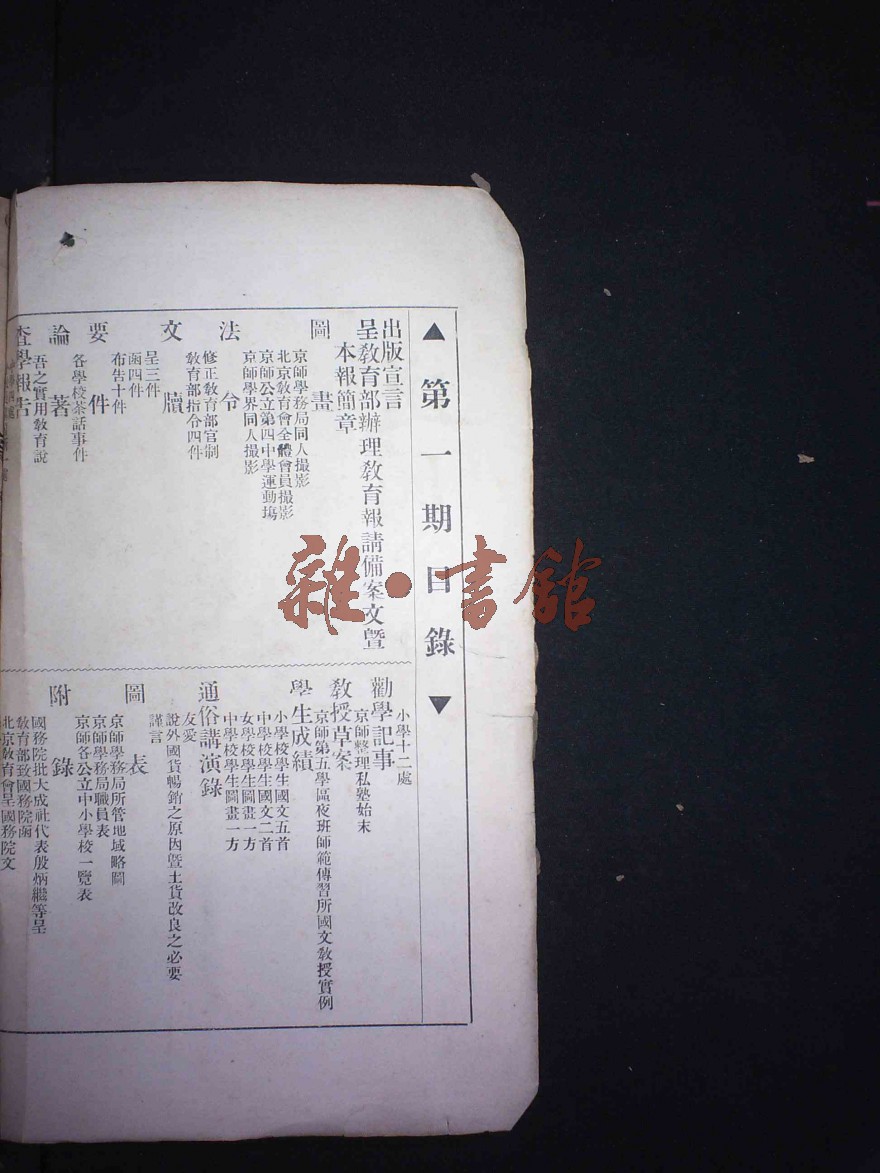 ▲第一期目錄▼
出版宣言
呈敎育部辦理敎育報請備案文曁
本報簡章
圖畫
京師學務局同人撮影
北京敎育會全體會員撮影
京師公立第四中學運動塲
京師學界同人撮影
法令
修正敎育部官制
敎育部指令四件
文牘
呈三件
函四件
布告十件
要件
各學校茶話事件
論著
吾之實用敎育說
查學報告
小學十二處
勸學記事
京師整理私塾始末
敎授草案
京師第五學區夜班師範傳習所國文敎授實例
學生成績
小學校學生國文五首
中學校學生國文二首
女學校學生圖畫一方
中學校學生圖畫一方
通俗講演錄
友愛
說外國貨暢銷之原因曁土貨改良之必要
謹言
圖表
京師學務局所管地域略圖
京師學務局職員表
京師各公立中小學校一覽表
附錄
國務院批大成社代表殷炳繼等呈
敎育部致國務院函
北京敎育會呈國務院文
雜·書館